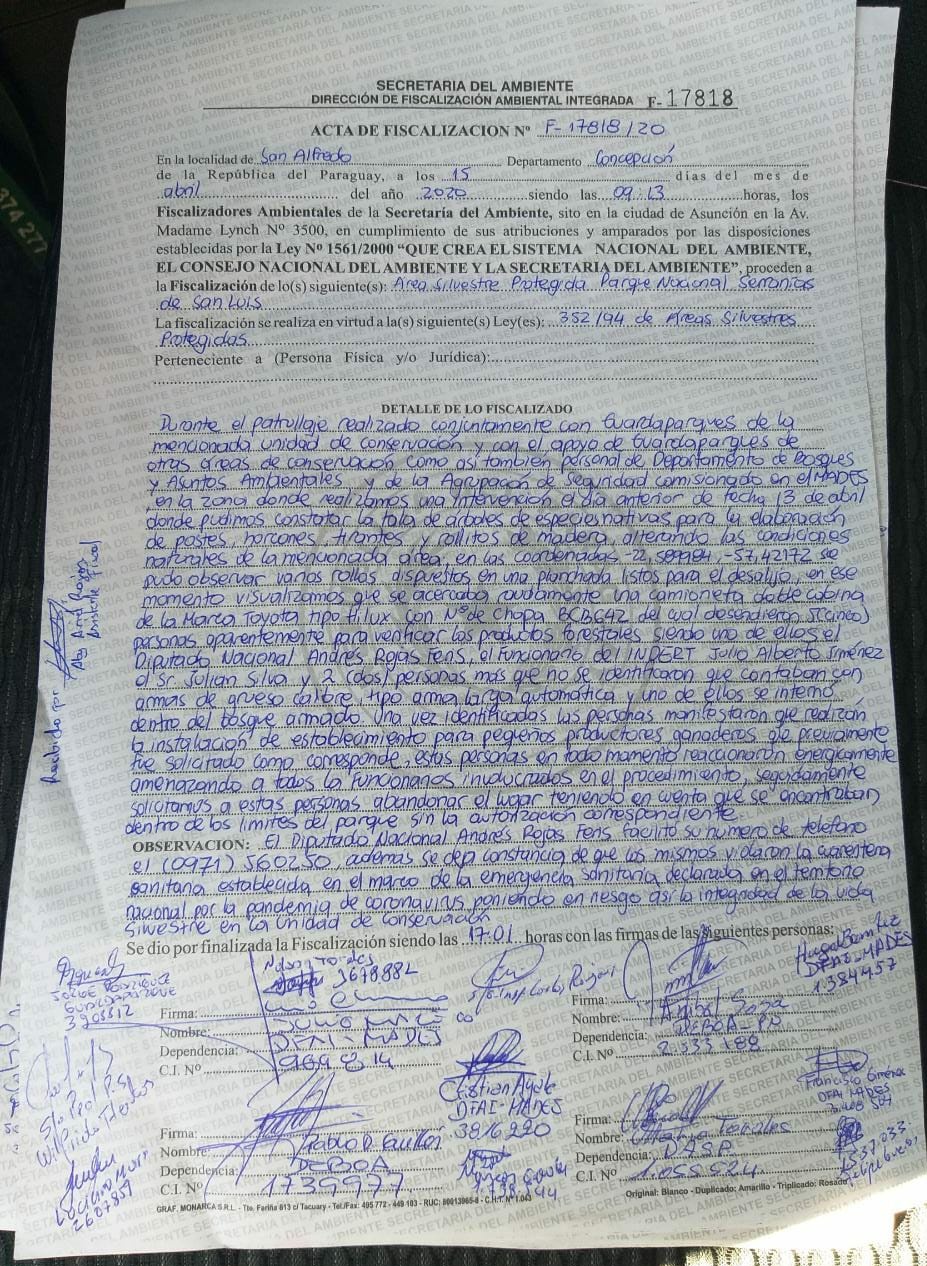 SECRETARIA DEL AMBIENTE
DIRECCIÓN DE FISCALIZACIÓN AMBIENTAL INTEGRADA F- 17818
ACTA DE FISCALIZACION Nº F-17818/20
En la localidad de San Alfredo Departamento Concepción
de la República del Paraguay, a los 15 días del mes de
abril del año 2020 siendo las 09:13 horas, los
Fiscalizadores Ambientales de la Secretaría del Ambiente, sito en la ciudad de Asunción en la Av.
Madame Lynch Nº 3500, en cumplimiento de sus atribuciones y amparados por las disposiciones
establecidas por la Ley Nº 1561/2000 “QUE CREA EL SISTEMA NACIONAL DEL AMBIENTE,
EL CONSEJO NACIONAL DEL AMBIENTE Y LA SECRETARIA DEL AMBIENTE”, proceden a
la Fiscalización de lo(s) siguiente(s): Area Silvestre Protegida Parque Nacional Serranias
de San Luis
La fiscalización se realiza en virtud a la(s) siguiente(s) Ley(es): 352/94 de Areas Silvestres
Protegidas
Perteneciente a (Persona Física y/o Jurídica):
DETALLE DE LO FISCALIZADO
Durante el patrullaje realizado conjuntamente con Guardaparques de la
mencionada unidad de conservación y con el apoyo de Guardaparques de
otras areas de conservación como asi tambien personal de Departamento de Bosques
y Asuntos Ambientales y de la Agrupación de Seguridad comisionado en el MADES
en la zona donde realizamos una intervención el dia anterior de fecha 13 de abril
donde pudimos constatar la tala de arboles de especies nativas para la elaboración
de postes, horcones, tirantes y rollitos de madera, alterando las condiciones
naturales de la mencionada area, en las coordenadas -57,42172 se
pudo observar varios rollos dispuestos en una planchada listos para el desalijo, en ese
momento visualizamos que se acercaba raudamente una camioneta doble cabina
de la Marca Toyota tipo Hilux con Nº de chapa BCB642 del cual descendieron 5(cinco)
personas aparentemente para verificar los productos forestales siendo uno de ellos el
Diputado Nacional Andrés Rojas Feris, el funcionario del INDERT Julio Alberto Jiménez
el Sr. Julian Silva y 2 (dos) personas mas que no se identificaron que contaban con
armas de grueso calibre, tipo arma larga automática y uno de ellos se interno
dentro del bosque armado. Una vez identificadas las personas manifestaron que realizan
la instalación de establecimiento para pequeños productores ganaderos que previamente
fue solicitado como corresponde, estas personas en todo momento reaccionaron energicamente
amenazando a todos lo funcionarios involucrados en el procedimiento, seguidamente
solicitamos a estas personas abandonar el lugar teniendo en cuenta que se encontraban
dentro de los limites del parque sin la autorización correspondiente.
OBSERVACION: El Diputado Nacional Andrés Rojas Feris facilito su numero de telefono
el (0971) 560250, ademas se deja constancia de que los mismos violaron la cuarentena
sanitaria establecida en el marco de la emergencia sanitaria declarada en el territorio
nacional por la pandemia de coronavirus, poniendo en riesgo asi la integridad de la vida
silvestre en la unidad de conservación
Se dio por finalizada la Fiscalización siendo las 17:01 horas con las firmas de las siguientes personas:
Recibido por
Asistente Fiscal
Guardaparque
3678882
DFAI-MADES
1384457
Firma:
Nombre:
Dependencia: DFAI-MADES
C.I. Nº
Firma:
Nombre: Anibal Sosa
Dependencia: DEBOA-PN
C.I. Nº 2.533188
Cristian Ayala
DFAI-MADES
3816220
Francisco Gimenez
DFAI MADES
Firma:
Nombre:
Dependencia: DEBOA
C.I. Nº 1739977
Firma:
Nombre:
Dependencia:
C.I. Nº 1.055524
Luciano Mora
2607859
GRAF. MONARCA S.R.L. - Tte. Fariña 813 c/ Tacuary - Tel./Fax: 495 772 - 449 183 - RUC: 80013965-8 - C.H.T. Nº 1.043
Original: Blanco - Duplicado: Amarillo - Triplicado: Rosado